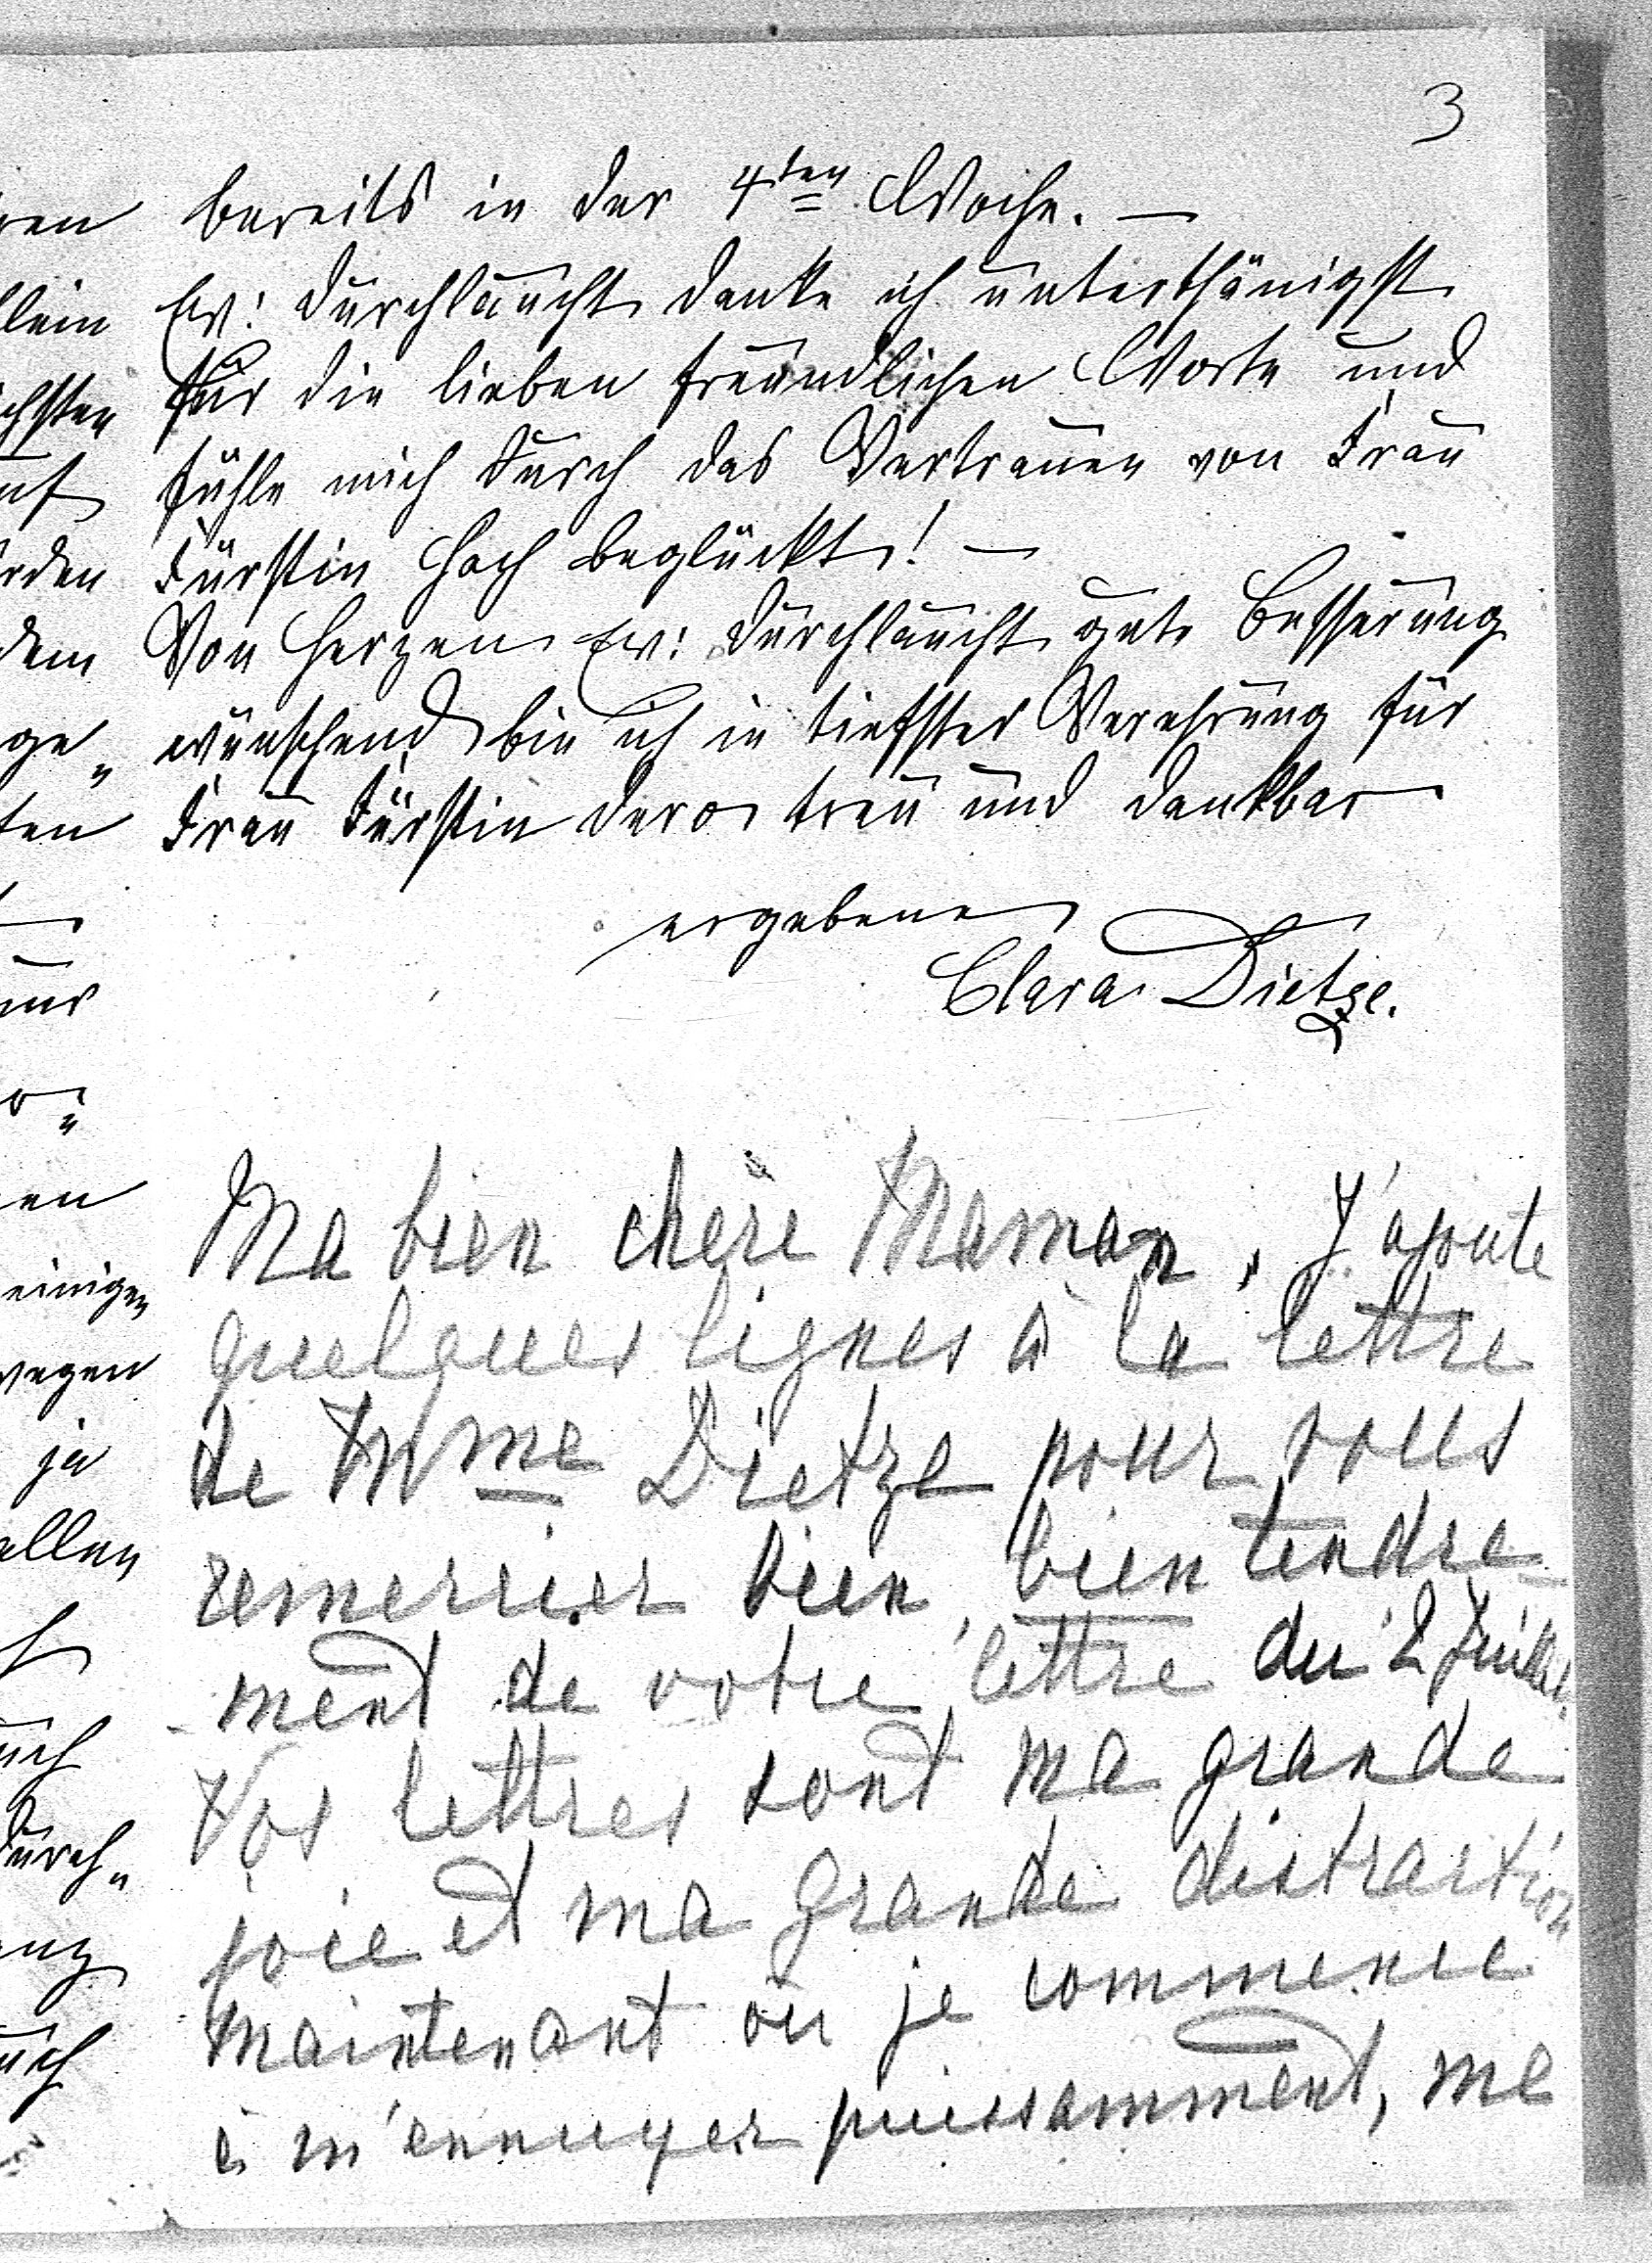 3
bereits in der 4ten Woche. —
Ew: Durchlaucht danke ich unterthänigst
für die lieben freundlichen Worte und
fühle mich durch das Vertrauen von Frau
Fürstin hoch beglückt! —
Von Herzen Ew: Durchlaucht gute Besserung
wünschend bin ich in tiefster Verehrung für
Frau Fürstin dero treu und dankbar
ergebene
Clara Dietze.
Ma bien chère Maman, J'ajoute
quelques lignes à la lettre
de Mme Dietze pour vous
remercier bien, bien tendre-
-ment de votre lettre du 2 Juillet.
Vos lettres sont ma grande
joie et ma grande distraction
maintenant où je commence
à m'ennuyer puissamment, me
ren
llein
chsten
auf
rden
dem
ge"
ten
nur
en
einigen
wegen
ja
allen
auch
durch"
auch